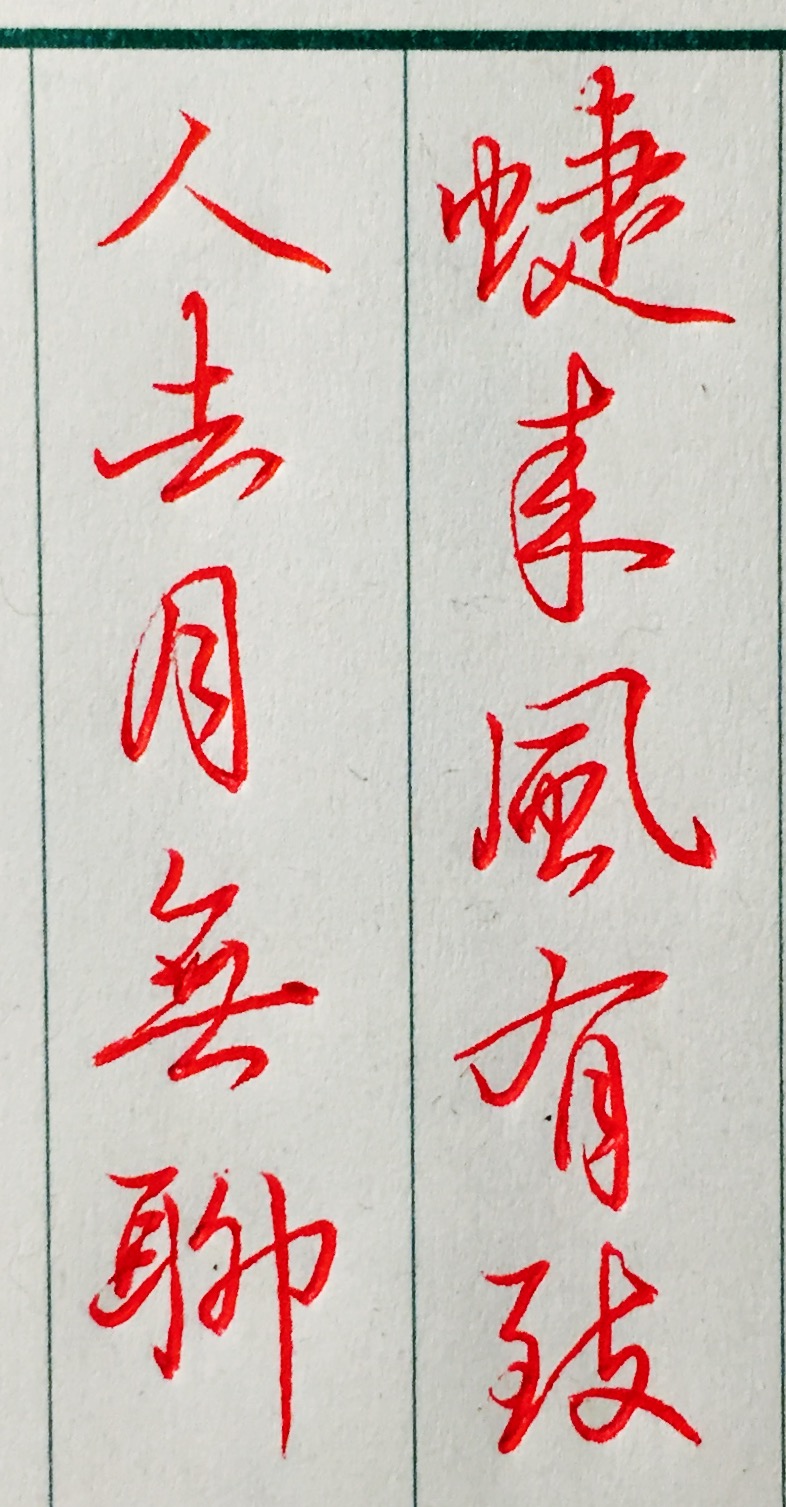 蜨來風有致
人去月無聊